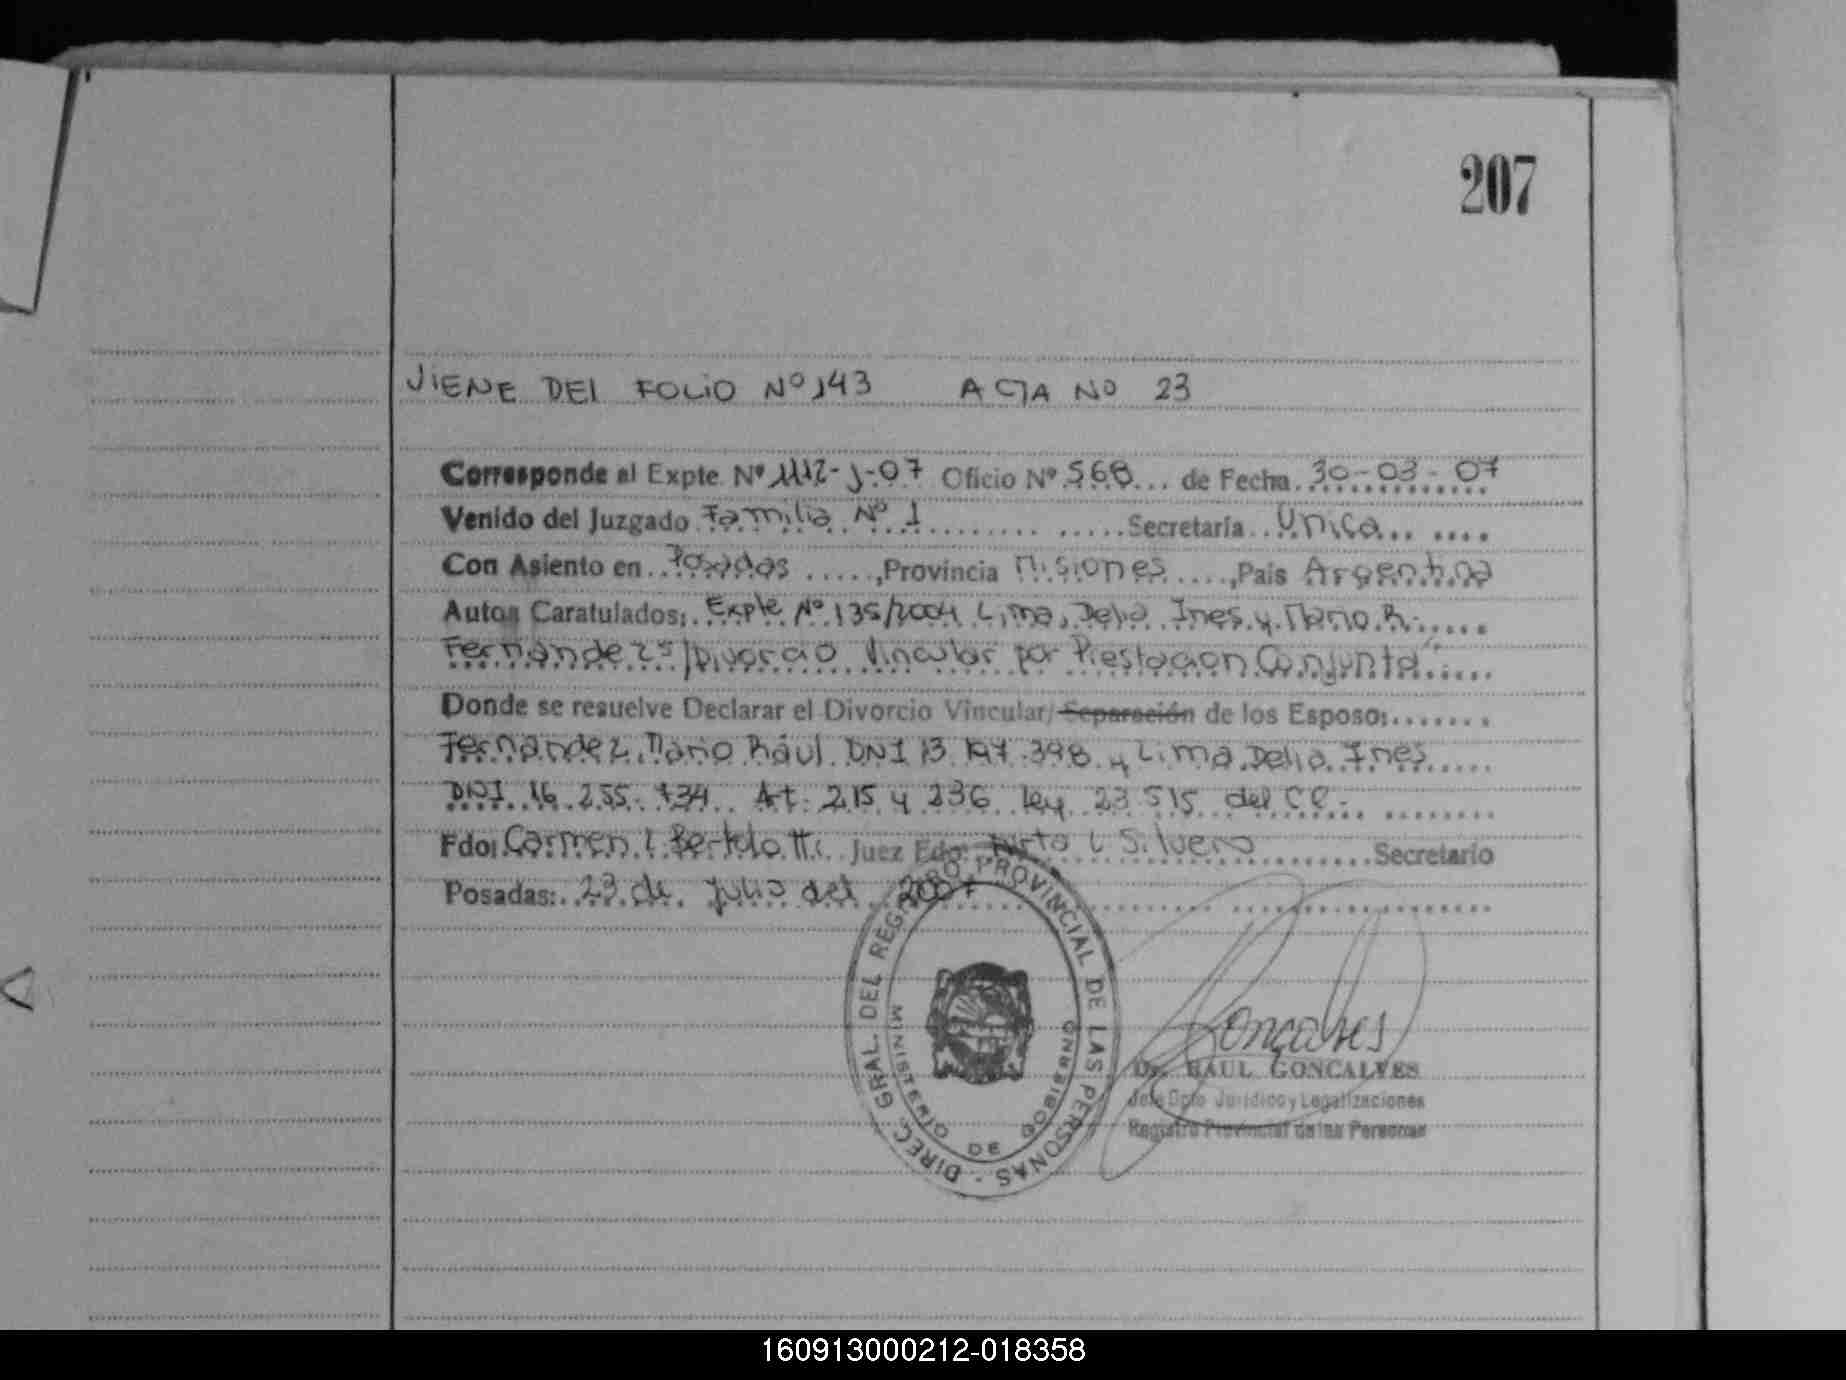 207
VIENE DEL FOLIO Nº 143 ACTA Nº 23
Corresponde al Expte. Nº 1112-J-07 Oficio Nº 568... de Fecha. 30-03-07
Venido del Juzgado Familia Nº 1 Secretaría Unica
Con Asiento en Posadas, Provincia Misiones, País Argentina
Autos Caratulados: Expte Nº 135/2004 Lima, Delia Ines y Mario R.
Fernandez s/Divorcio Vincular por Prestacion Conjunta
Donde se resuelve Declarar el Divorcio Vincular/ Separación de los Esposo:
Fernandez, Mario Raúl DNI 13.197.398 y Lima Delia Ines
DNI 16.255.734 Art: 215 y 236 ley 23.515 del CC.
Fdo: Carmen L Bertolotti Juez Fdo: L Silvero Secretario
Posadas: 23 de Julio del 2007
DIREC. GRAL. DEL REGISTRO PROVINCIAL DE LAS PERSONAS -
MINISTERIO DE GOBIERNO
Goncalves
Dr. RAUL GONCALVES
Jefe Dpto Jurídico y Legalizaciones
Registro Provincial de las Personas
160913000212-018358